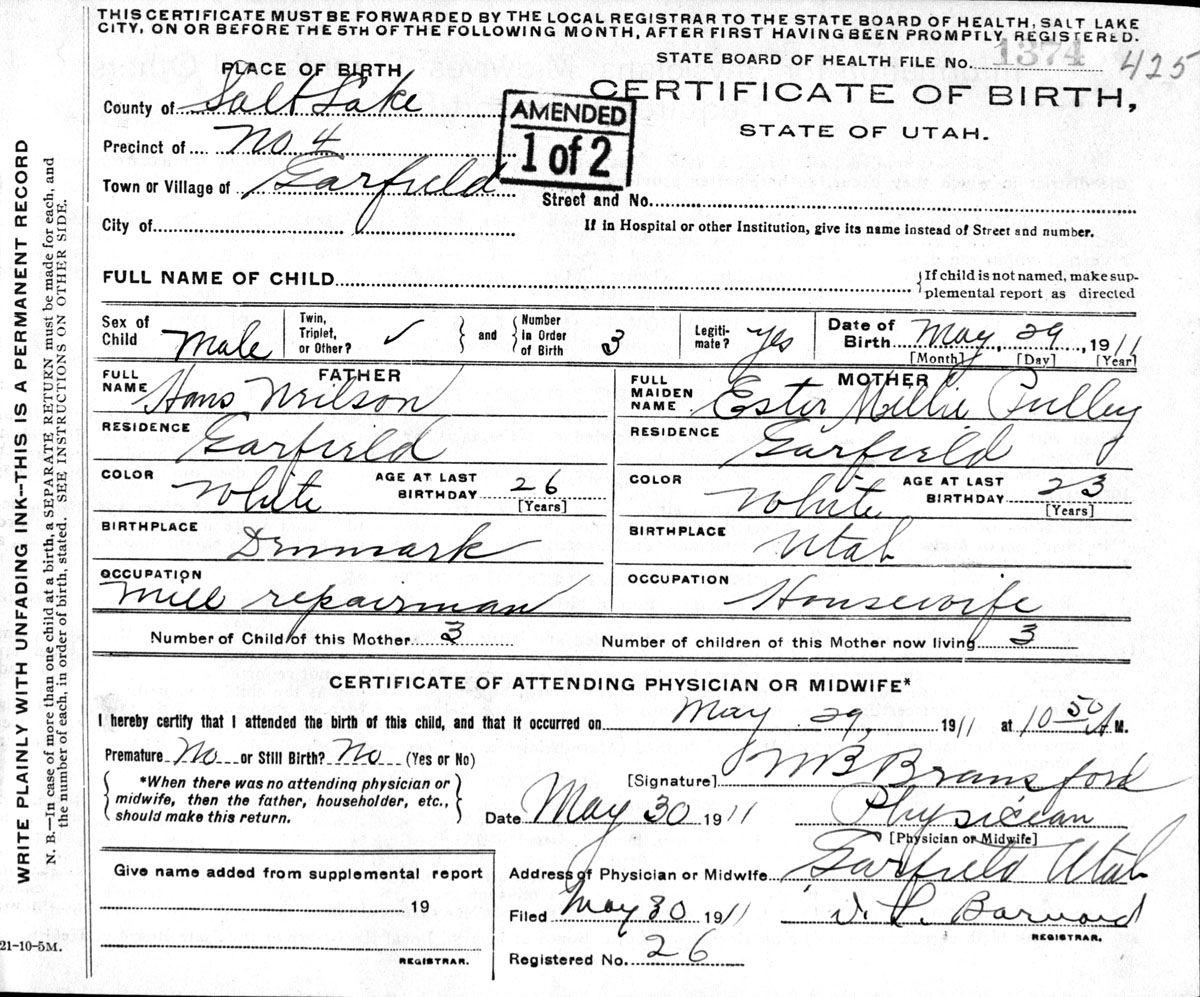 THIS CERTIFICATE MUST BE FORWARDED BY THE LOCAL REGISTRAR TO THE STATE BOARD OF HEALTH, SALT LAKE
CITY, ON OR BEFORE THE 5TH OF THE FOLLOWING MONTH, AFTER FIRST HAVING BEEN PROMPTLY REGISTERED.
STATE BOARD OF HEALTH FILE No. 1374 425
PLACE OF BIRTH
CERTIFICATE OF BIRTH,
STATE OF UTAH.
County of Salt Lake
AMENDED
1 of 2
Precinct of No 4
Town or Village of Garfield
Street and No.
City of
If in Hospital or other Institution, give its name instead of Street and number.
FULL NAME OF CHILD
If child is not named, make sup-
plemental report as directed
Sex of Child Male
Twin, Triplet, or Other? ✓ and Number in Order of Birth 3
Legiti-mate? yes
Date of Birth May 29, 1911
[Month] [Day] [Year]
FATHER
FULL NAME Hans Neilson
MOTHER
FULL MAIDEN NAME Ester Millie Pulley
RESIDENCE Garfield
RESIDENCE Garfield
COLOR White AGE AT LAST BIRTHDAY 26 [Years]
COLOR White AGE AT LAST BIRTHDAY 23 [Years]
BIRTHPLACE Denmark
BIRTHPLACE Utah
OCCUPATION Mill repairman
OCCUPATION Housewife
Number of Child of this Mother 3 Number of children of this Mother now living 3
CERTIFICATE OF ATTENDING PHYSICIAN OR MIDWIFE*
I hereby certify that I attended the birth of this child, and that it occurred on May 29, 1911 at 10 50 A M.
Premature No or Still Birth? No (Yes or No)
*When there was no attending physician or
midwife, then the father, householder, etc.,
should make this return.
[Signature] W B Bransford
Date May 30 1911 Physician
[Physician or Midwife]
Address of Physician or Midwife Garfield Utah
Give name added from supplemental report
19
REGISTRAR.
Filed May 30 1911 Barnard
REGISTRAR.
Registered No. 26
21-10-5M.
WRITE PLAINLY WITH UNFADING INK—THIS IS A PERMANENT RECORD
N. B.—In case of more than one child at a birth, a SEPARATE RETURN must be made for each, and
the number of each, in order of birth, stated. SEE INSTRUCTIONS ON OTHER SIDE.